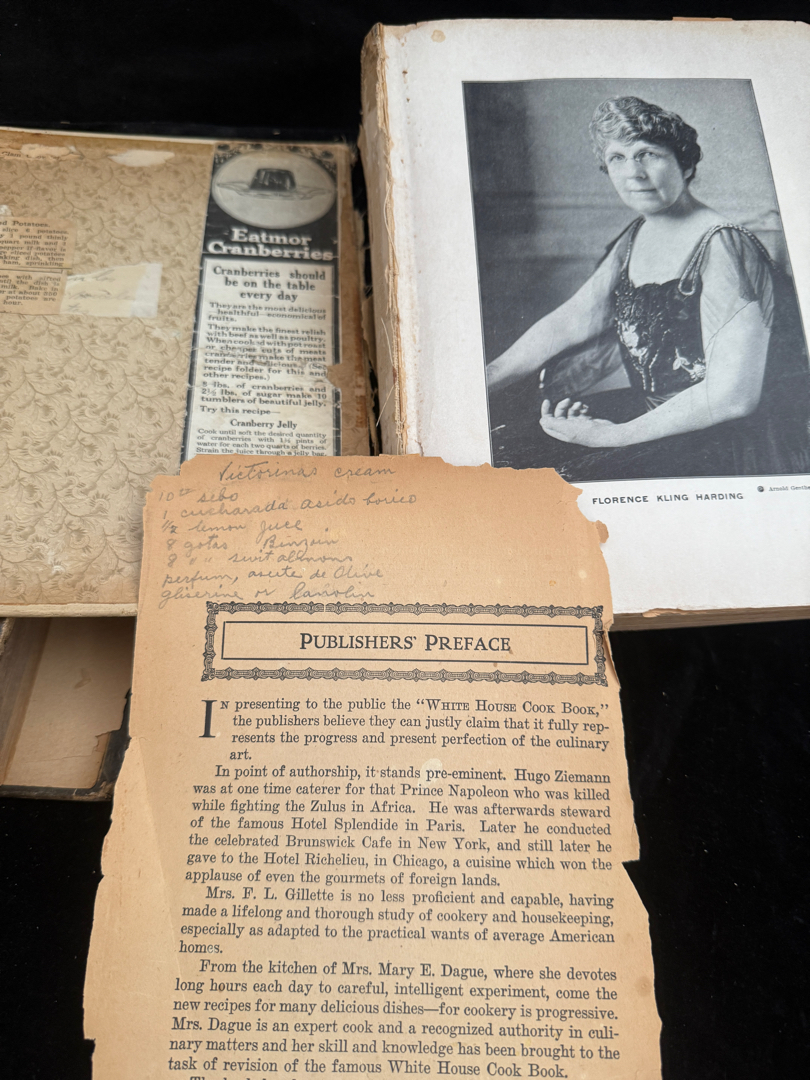 d Potatoes.
slice 6 potatoes
1 pound thinly
quart milk and 1
pepper if flavor is
sliced potatoes
aking dish, then
ham, sprinkling
with sifted
until the dish is
milk. Bake in
at about 350
potatoes are
hour.
Eatmor
Cranberries
Cranberries should
be on the table
every day
They are the most delicious
healthful—economical of
fruits.
They make the finest relish
with beef as well as poultry.
When cooked with pot roast
or cheaper cuts of meats
cranberries make the meat
tender and delicious. (See
recipe folder for this and
other recipes.)
8 lbs. of cranberries and
2½ lbs. of sugar make 10
tumblers of beautiful jelly.
Try this recipe—
Cranberry Jelly
Cook until soft the desired quantity
of cranberries with 1½ pints of
water for each two quarts of berries.
Strain the juice through a jelly bag.
FLORENCE KLING HARDING
Arnold Genthe
Victorinas cream
10 sebo
1 cucharada asido borico
½ lemon juce
8 gotas Binzoin
8 " " swit almons
perfum, aseite de Olive
gliserine or lanolin
PUBLISHERS' PREFACE
IN presenting to the public the "WHITE HOUSE COOK BOOK,"
the publishers believe they can justly claim that it fully rep-
resents the progress and present perfection of the culinary
art.
In point of authorship, it stands pre-eminent. Hugo Ziemann
was at one time caterer for that Prince Napoleon who was killed
while fighting the Zulus in Africa. He was afterwards steward
of the famous Hotel Splendide in Paris. Later he conducted
the celebrated Brunswick Cafe in New York, and still later he
gave to the Hotel Richelieu, in Chicago, a cuisine which won the
applause of even the gourmets of foreign lands.
Mrs. F. L. Gillette is no less proficient and capable, having
made a lifelong and thorough study of cookery and housekeeping,
especially as adapted to the practical wants of average American
homes.
From the kitchen of Mrs. Mary E. Dague, where she devotes
long hours each day to careful, intelligent experiment, come the
new recipes for many delicious dishes—for cookery is progressive.
Mrs. Dague is an expert cook and a recognized authority in culi-
nary matters and her skill and knowledge has been brought to the
task of revision of the famous White House Cook Book.